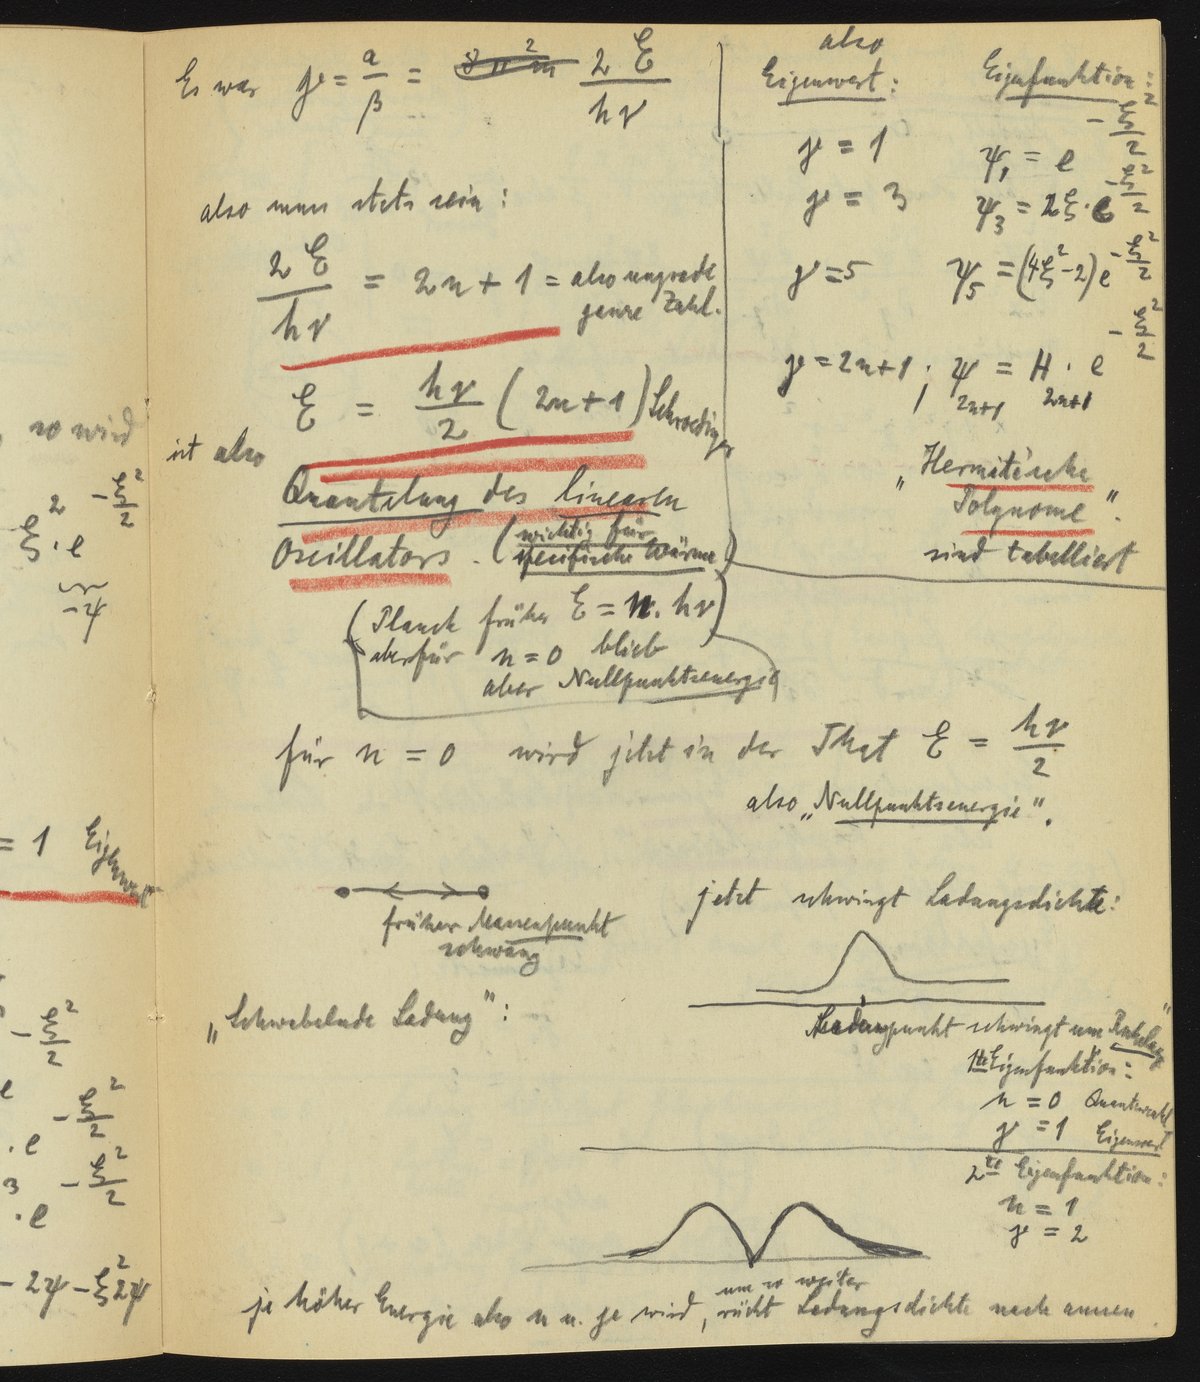 so wird
ξ² · e^(-ξ²/2)
-ψ
= 1 Eigenwert
-ξ²/2
e -ξ²/2
· e
3 -ξ²/2
· e
- 2ψ - ξ²2ψ
Es war γ = a/β = 2ℰ/hγ
also muss stets sein:
2ℰ/hγ = 2n + 1 = also ungrade
ganze Zahl.
ℰ = hγ/2 (2n + 1) Schroedinger
ist also
Quantelung des linearen
Oscillators. (wichtig für
spezifische Wärme)
(Planck früher ℰ = n. hγ)
aber für n = 0 blieb
aber Nullpunktsenergie
also
Eigenwert: Eigenfunktion:
γ = 1 ψ₁ = e^(-ξ²/2)
γ = 3 ψ₃ = 2ξ · e^(-ξ²/2)
γ = 5 ψ₅ = (4ξ² - 2) e^(-ξ²/2)
γ = 2n+1 ; ψ₂ₙ₊₁ = H₂ₙ₊₁ · e^(-ξ²/2)
„Hermite'sche
Polynome".
sind tabelliert
für n = 0 wird jetzt in der That ℰ = hγ/2
also „Nullpunktsenergie".
früher Massenpunkt
schwang
jetzt schwingt Ladungsdichte:
„Schwebelnde Ladung":
punkt schwingt um Ruhelage
1te Eigenfunktion:
n = 0 Quantenzahl
γ = 1 Eigenwert
2te Eigenfunktion:
n = 1
γ = 2
je höher Energie also n u. γ wird, um so weiter rückt Ladungsdichte nach aussen